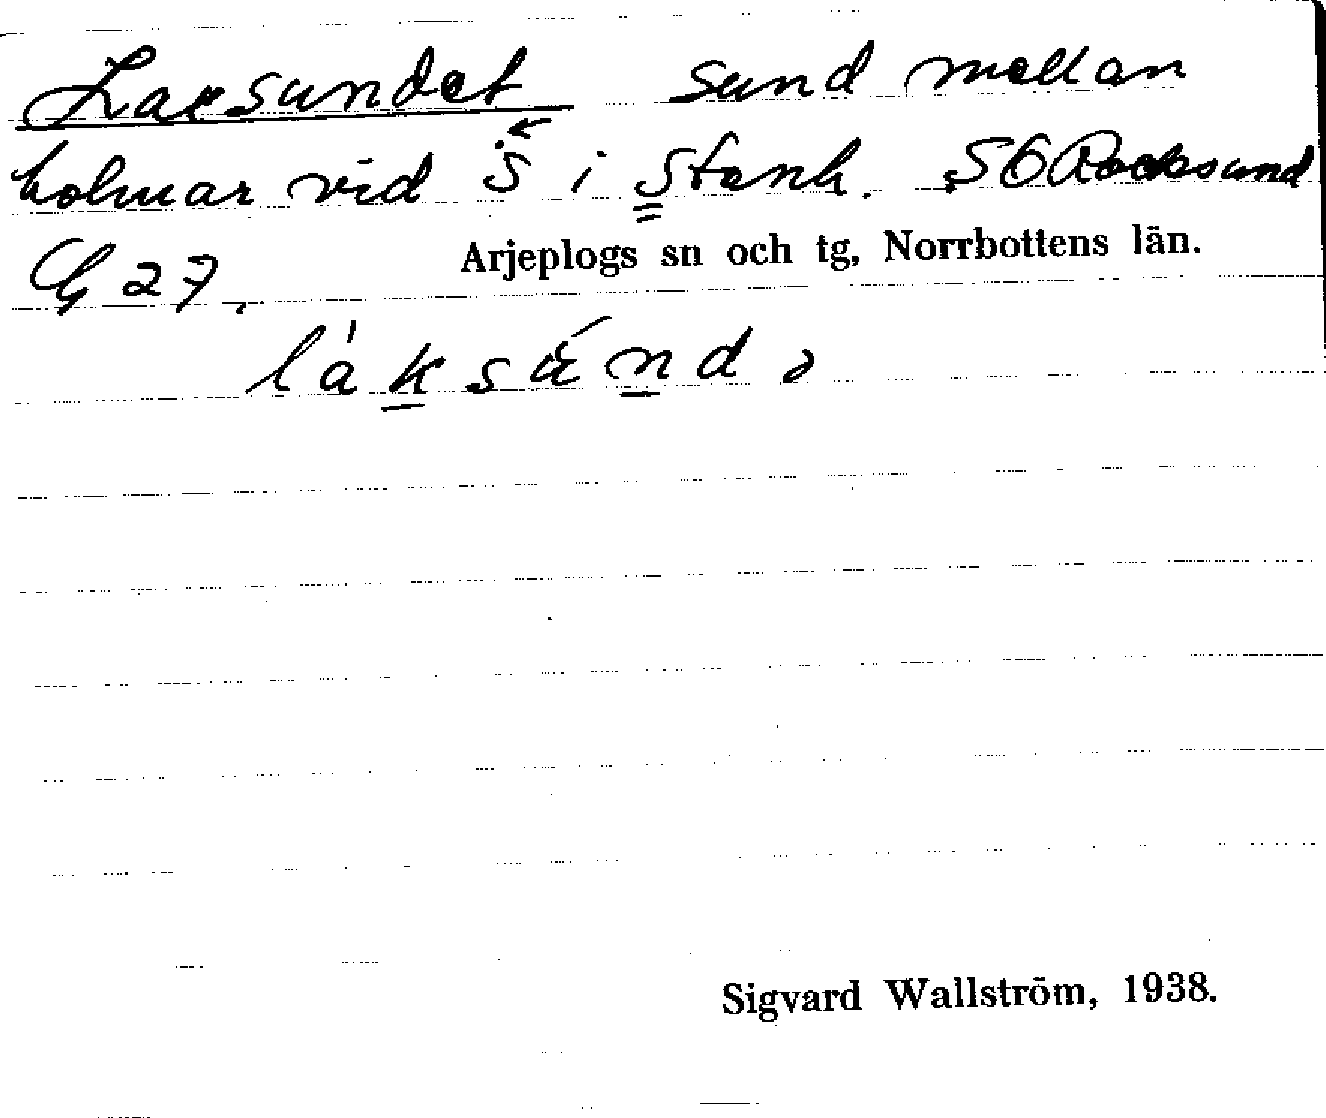 Laxsundet sund mellan
holmar vid S i Stenh. SO Racksund
G 27. Arjeplogs sn och tg, Norrbottens län.
Sigvard Wallström, 1938.